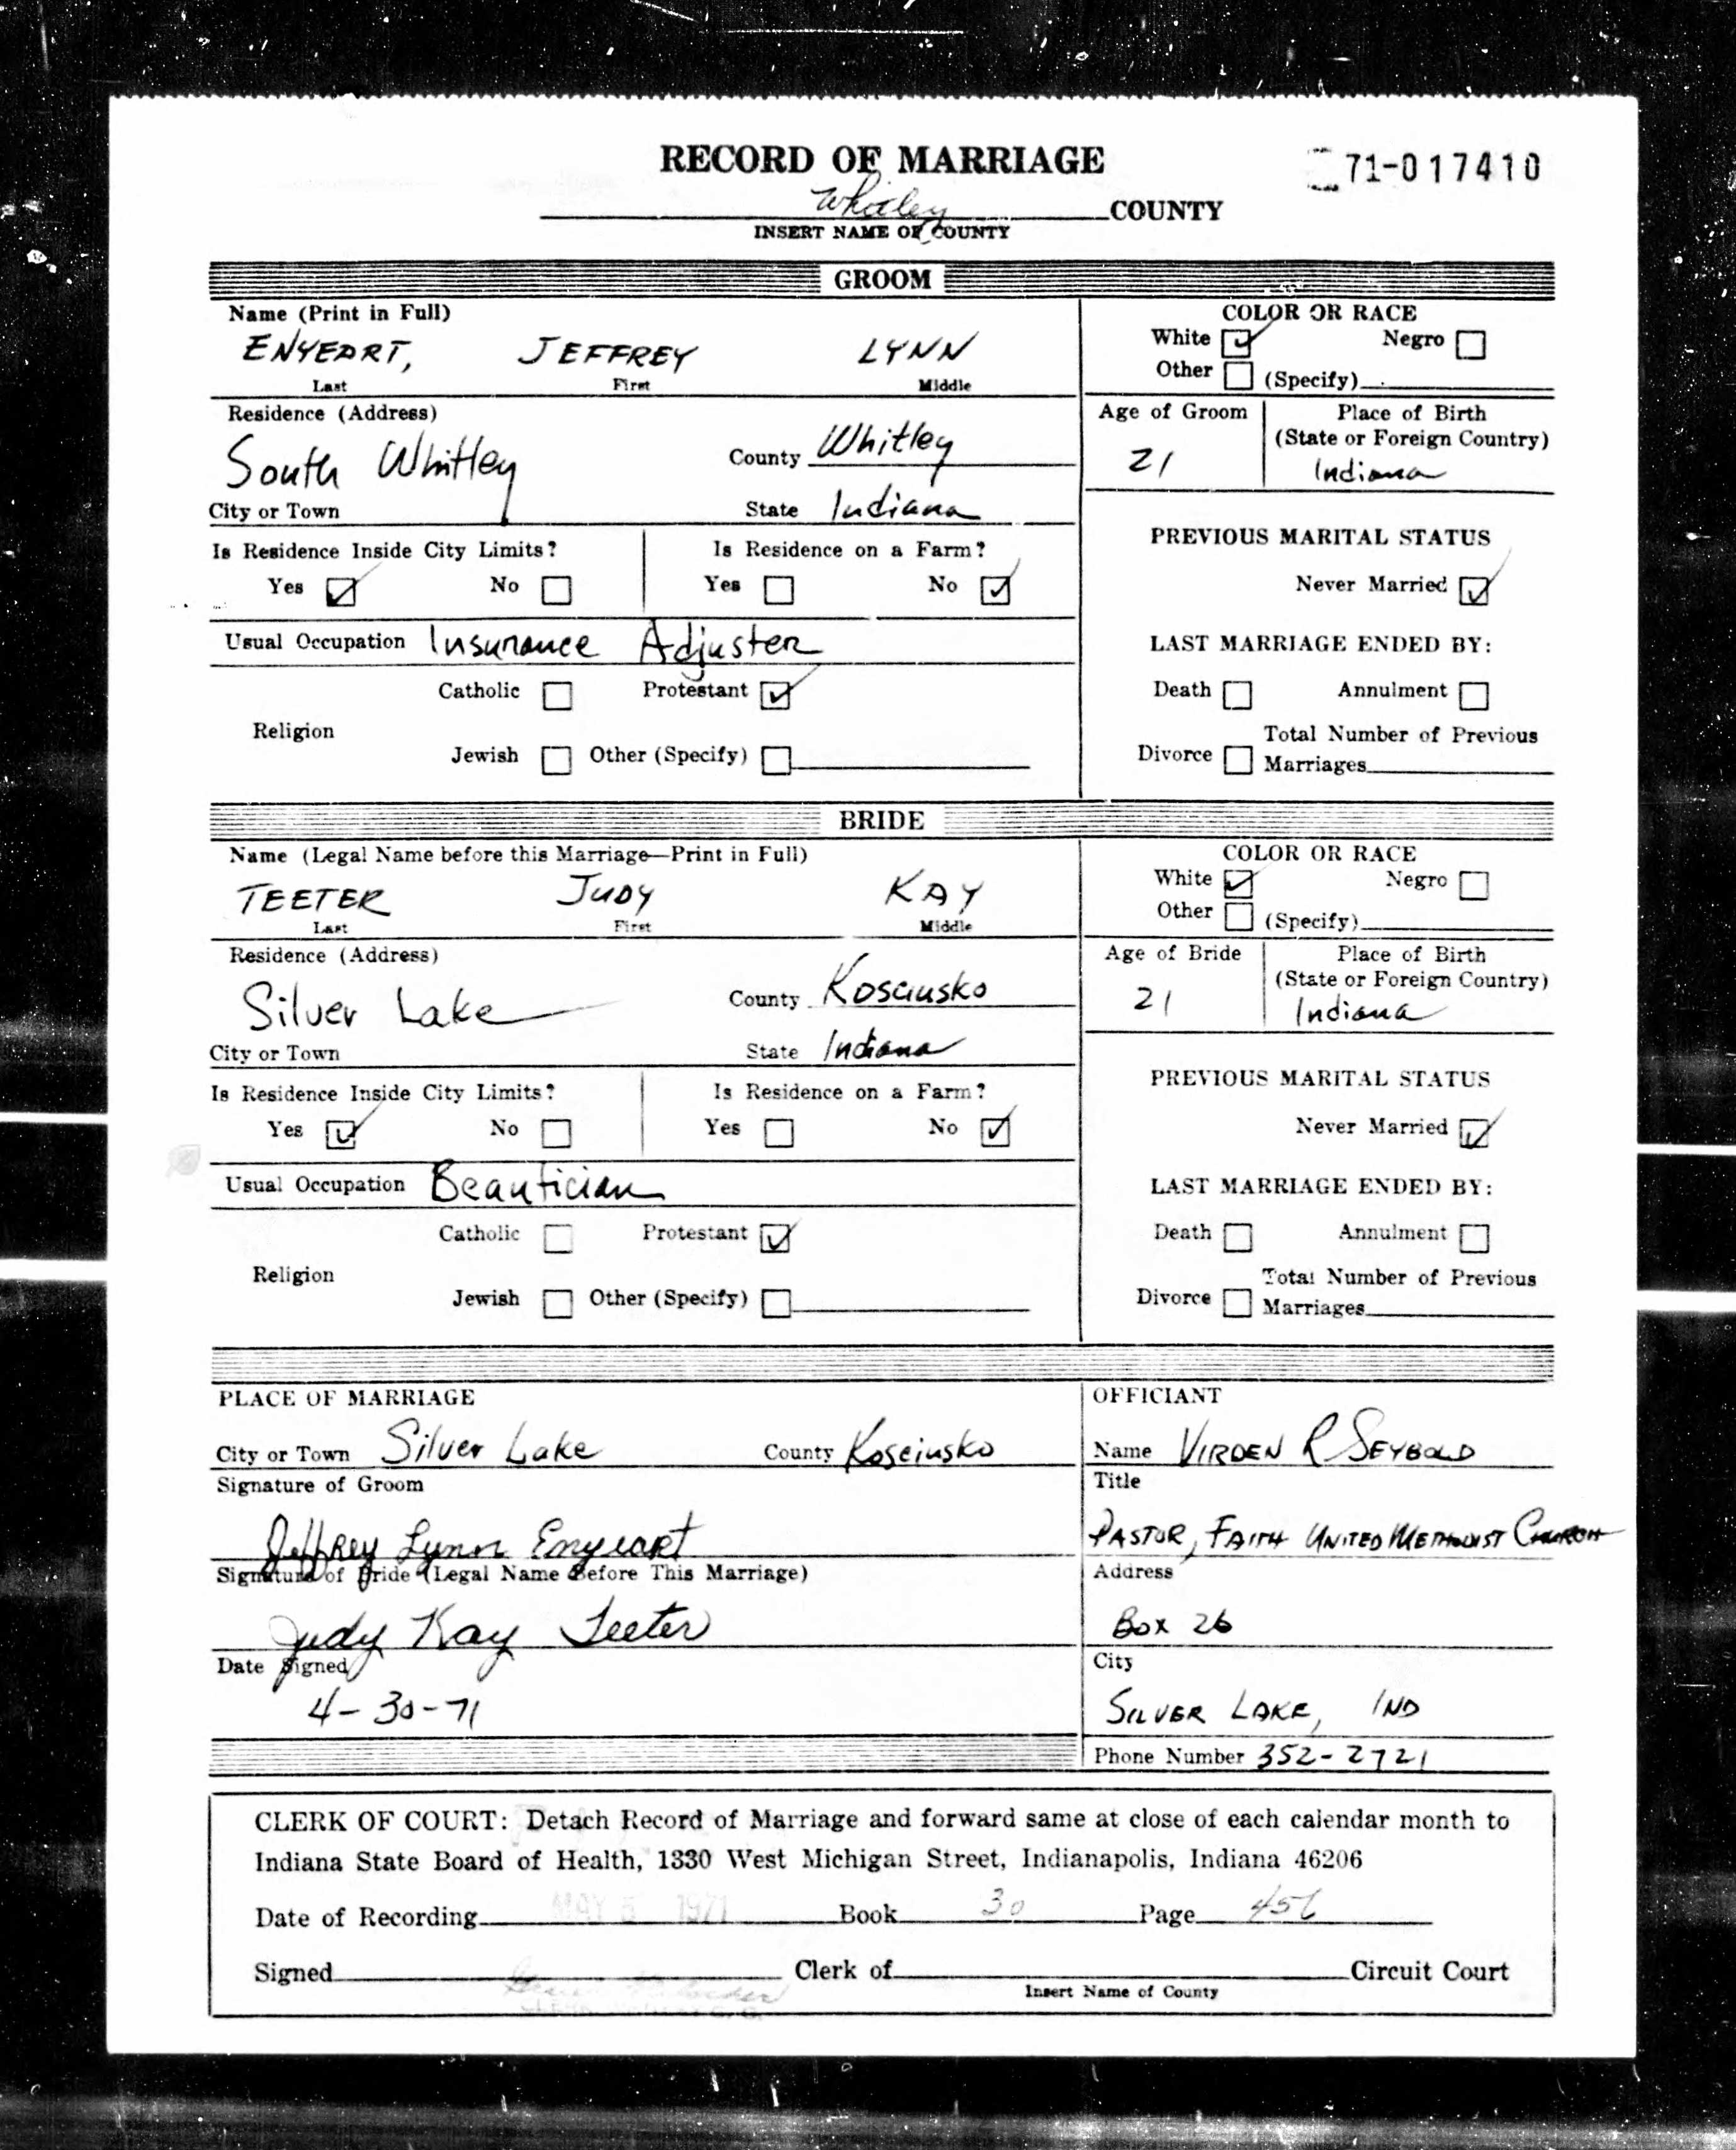 RECORD OF MARRIAGE
71-017410
Whitley COUNTY
INSERT NAME OF COUNTY
GROOM
Name (Print in Full)
ENYEART, JEFFREY LYNN
Last First Middle
COLOR OR RACE
White Negro
Other (Specify)
Residence (Address)
South Whitley
County Whitley
City or Town
State Indiana
Age of Groom
21
Place of Birth
(State or Foreign Country)
Indiana
Is Residence Inside City Limits?
Yes No
Is Residence on a Farm?
Yes No
PREVIOUS MARITAL STATUS
Never Married
Usual Occupation Insurance Adjuster
LAST MARRIAGE ENDED BY:
Catholic Protestant
Religion
Jewish Other (Specify)
Death Annulment
Total Number of Previous
Divorce Marriages
BRIDE
Name (Legal Name before this Marriage—Print in Full)
TEETER JUDY KAY
Last First Middle
COLOR OR RACE
White Negro
Other (Specify)
Residence (Address)
Silver Lake
County Kosciusko
City or Town
State Indiana
Age of Bride
21
Place of Birth
(State or Foreign Country)
Indiana
Is Residence Inside City Limits?
Yes No
Is Residence on a Farm?
Yes No
PREVIOUS MARITAL STATUS
Never Married
Usual Occupation Beautician
LAST MARRIAGE ENDED BY:
Catholic Protestant
Religion
Jewish Other (Specify)
Death Annulment
Total Number of Previous
Divorce Marriages
PLACE OF MARRIAGE
City or Town Silver Lake County Kosciusko
Signature of Groom
Jeffrey Lynn Enyeart
Signature of Bride (Legal Name Before This Marriage)
Judy Kay Teeter
Date Signed
4-30-71
OFFICIANT
Name VIRDEN R SEYBOLD
Title
PASTOR, FAITH UNITED METHODIST CHURCH
Address
BOX 26
City
SILVER LAKE, IND
Phone Number 352-2721
CLERK OF COURT: Detach Record of Marriage and forward same at close of each calendar month to
Indiana State Board of Health, 1330 West Michigan Street, Indianapolis, Indiana 46206
Date of Recording MAY 5 1971 Book 30 Page 456
Signed Clerk of Circuit Court
Insert Name of County